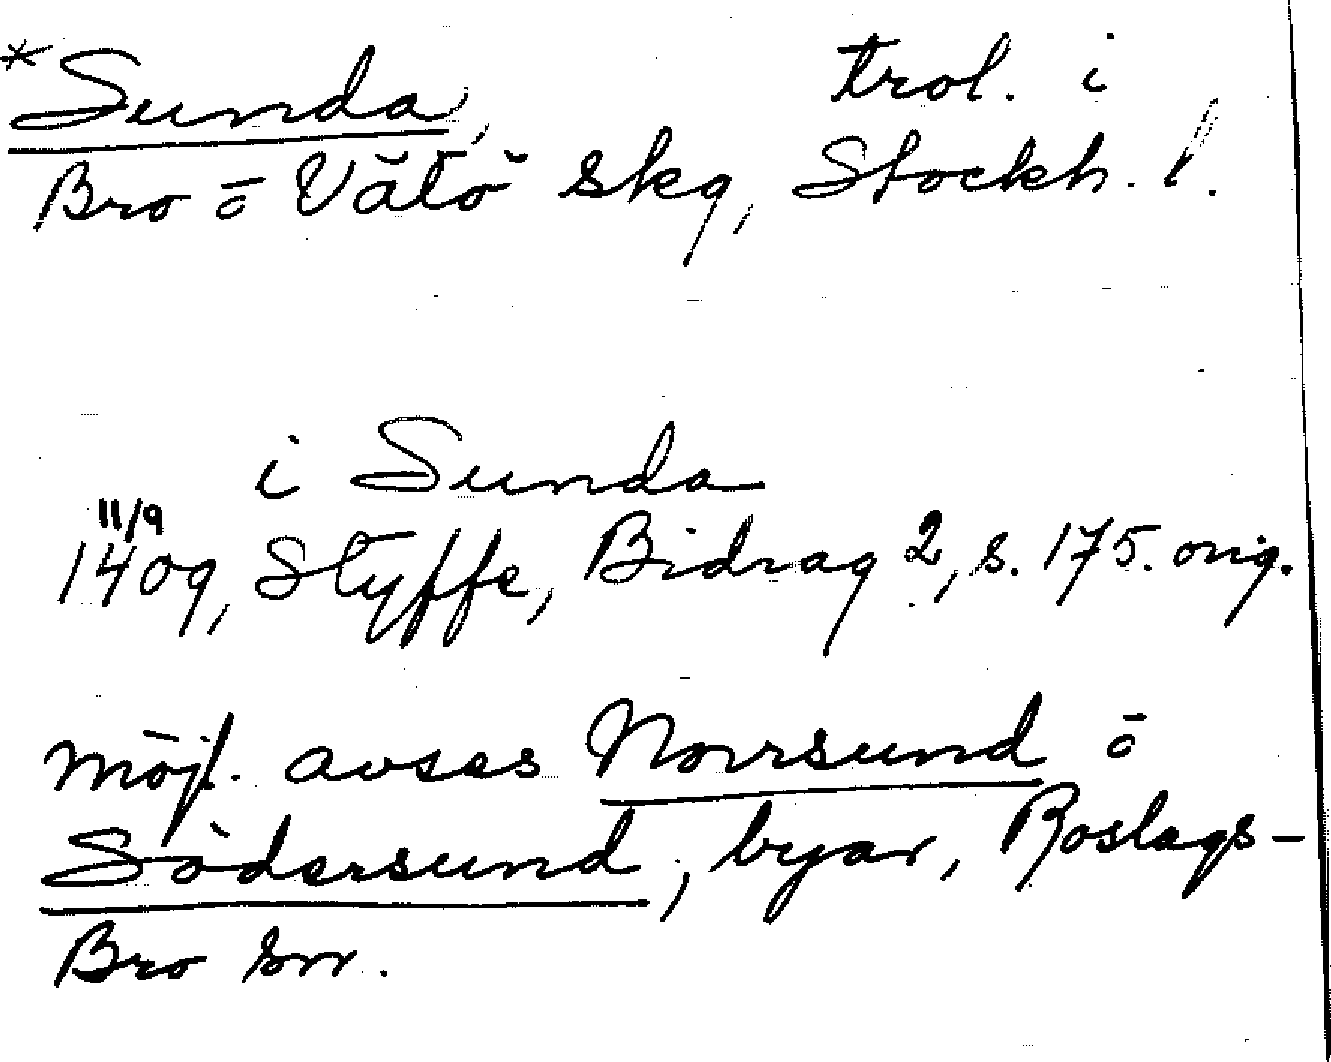 *Sunda, trol. i
Bro o Vätö skg, Stockh. l.
i Sunda
11/9
1409, Styffe, Bidrag 2, s. 175. orig.
möjl. avses Norrsund o
Södersund, byar, Roslags-
Bro sn.